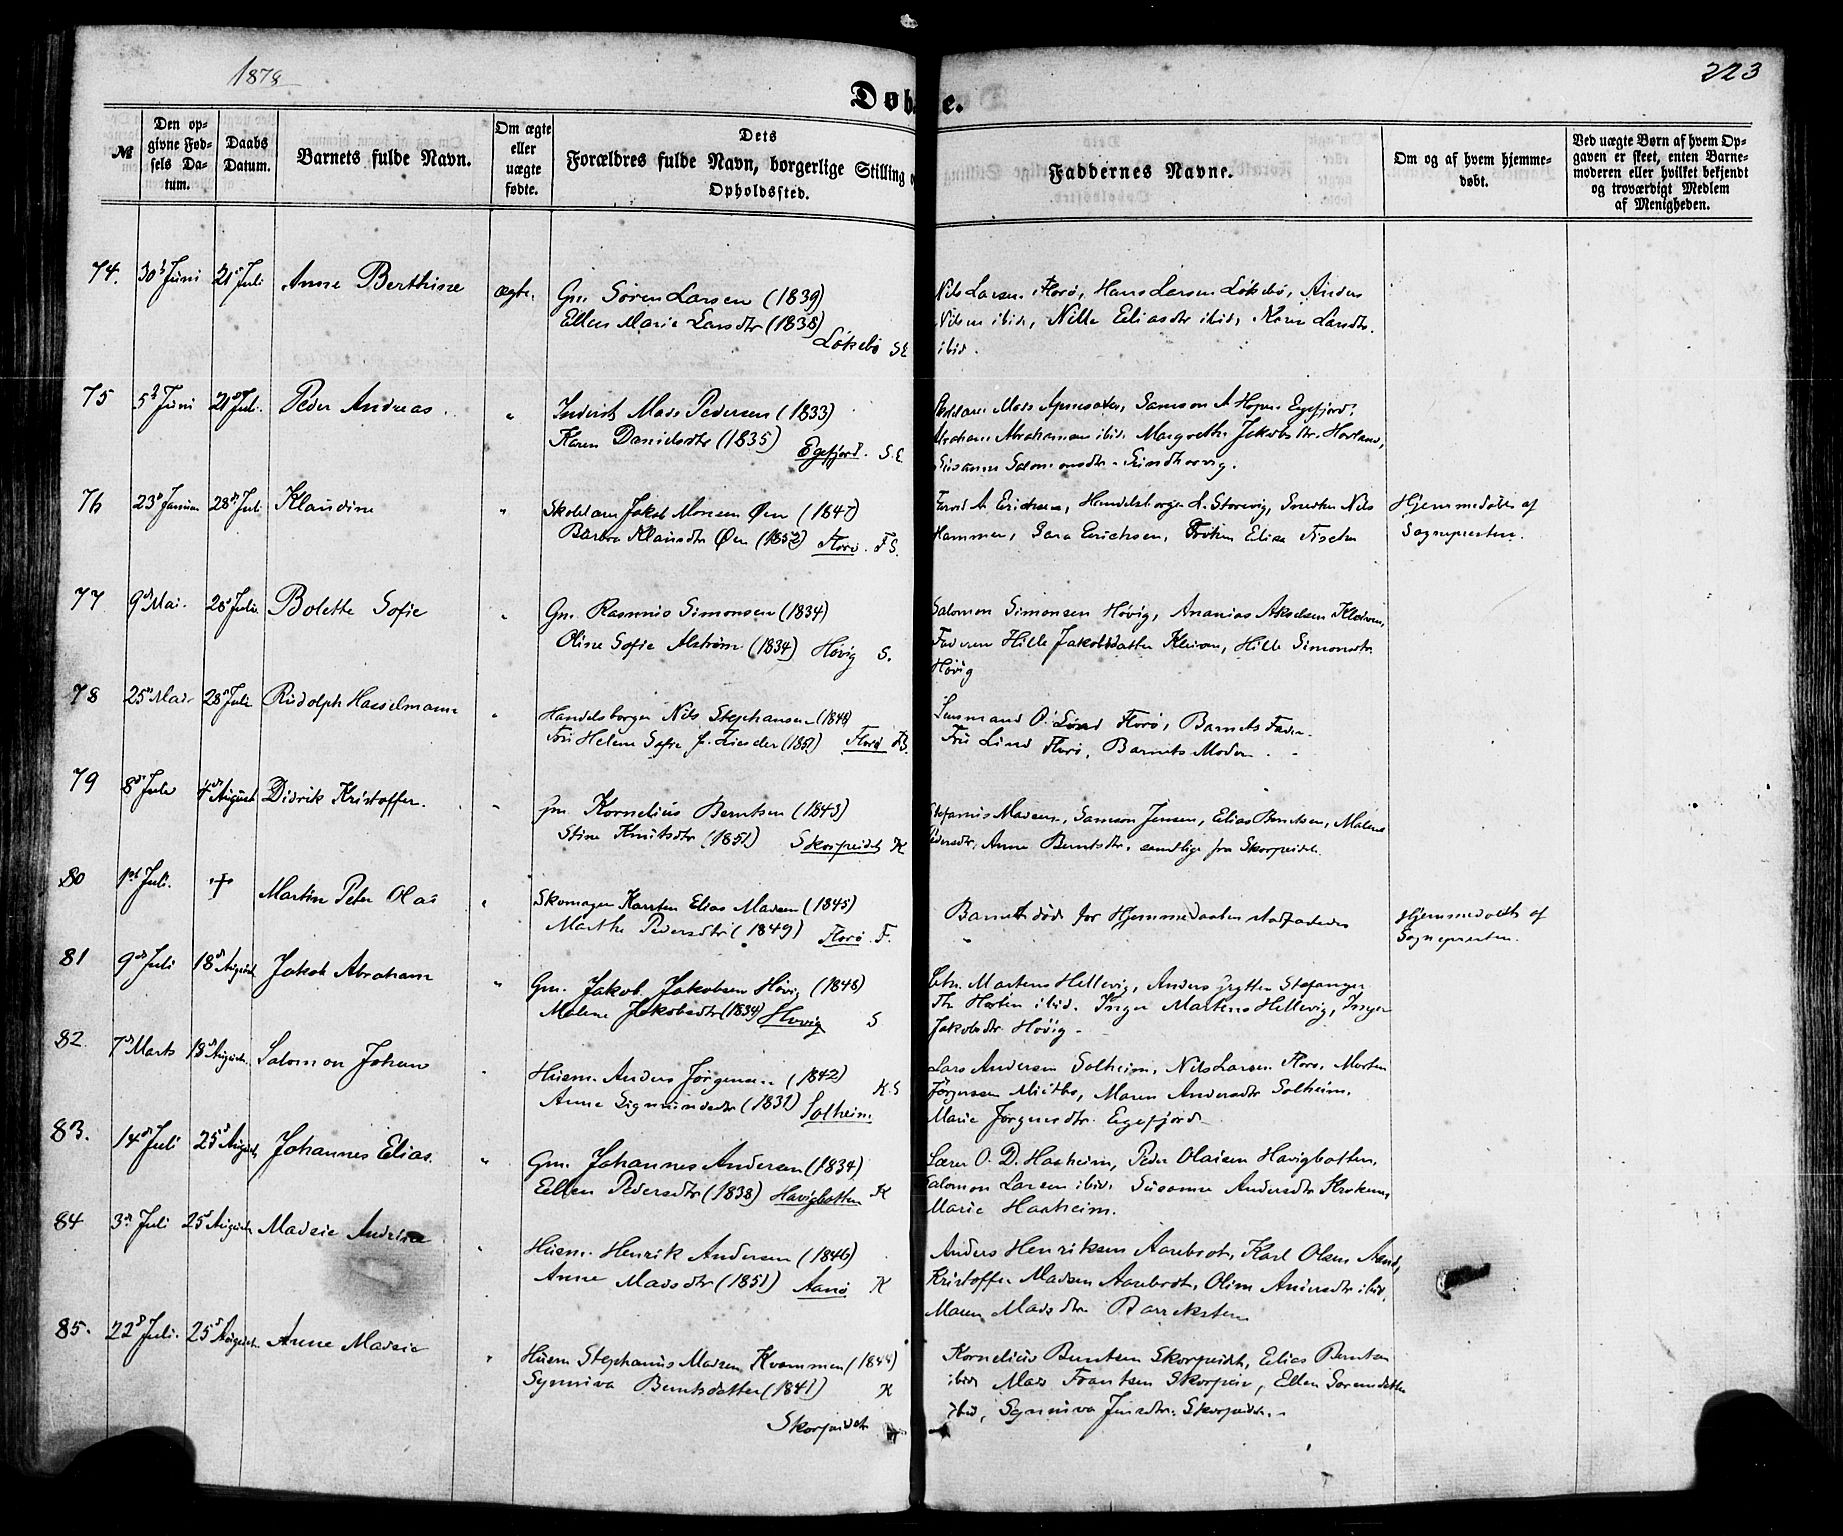 1878
223
Døbte.
№
Den opgivne Fødsels Datum.
Daabs Datum.
Barnets fulde Navn.
Om ægte eller uægte fødte.
Dets Forældres fulde Navn, borgerlige Stilling o
Opholdssted.
Faddernes Navne.
Om og af hvem hjemmedøbt.
Ved uægte Børn af hvem Opgaven er skeet, enten Barnemoderen eller hvilket bekjendt og troværdigt Medlem af Menigheden.
74. 30 Juni 21 Juli Anne Berthine ægte. Gm. Søren Larsen (1839)
Ellen Marie Larsdtr (1838)
Løkebø S E
Nils Larsen Florø, Hans Larsen Løkebø, Anders
Nilsen ibid, Nille Eliasdtr ibid, Larsdtr.
ibid.
75 5 Juni 21 Juli. Peder Andreas Mads Pedersen (1833)
Karen Danielsdtr (1835) Egefjord. S.E.
Mads Samson A Hope Egefjord,
Abraham Abrahamsen ibid. Margrethe Jakobsdtr. Hovland,
Susanne Salomonsdtr
76 23 Januar 28 Juli Klaudine Jakob Monsen Øen (1847)
Barbra Klausdtr Øen (1852) Florø. F S.
A Erichsen, Handelsborger Storevig, Nils
Hammer, Sara Erichsen, Frøken Elisa Fischer
Hjemmedøbt af
Sognepresten.
77 9 Mai. 28 Juli Bolette Sofie Gm. Rasmus Simonsen (1834)
Oline Sofie Alstrøm (1834) Høvig S.
Salomon Simonsen Høvig, Ananias Akselsen
Hille Jakobsdatter Hille Simonsdtr.
Høvig
78 25 Mai 28 Juli Rudolph Hasselmann Handelsborger Nils Stephansen (1848)
Fru Helene Sofie f. (1851) Florø FS.
Lensmand O. Lind Florø, Barnets Fader
Fru Lind Florø, Barnets Moder
79 8 Juli 4 August Didrik Kristoffer. Gm Kornelius Berntsen (1843)
Stine Knutsdtr (1851) Skorpeidet K
Stefanus Madsen, Samson Jensen, Elias Berntsen, Malene
Pedersdtr, Anne Berntsdtr. samtlige fra Skorpeidet.
80 1 Juli. † Martin Peter Olai Skomager Karsten Elias Madsen (1845)
Marthe Pedersdtr (1849) Florø. F.
Barnet døde før Hjemmedaaben
Hjemmedøbt af
Sognepresten.
81 9 Juli 18 August Jakob Abraham Gm. Jakob Jakobsen Høvig (1848)
Malene Jakobsdtr (1834) Høvig S
Martens Hellevig, Anders
ibid. Inger Martens Hellevig, Inger
Jakobsdtr Høvig
82. 7 Marts 18 August Salomon Johan Husm. Anders Jørgensen (1842) K.S
Anne Sigmundsdtr (1831) Solheim
Lars Andersen Solheim, Nils Larsen Florø, Morten
Jørgensen Maren Andersdtr Solheim,
Marie Jørgensdtr. Egefjord
83. 14 Juli 25 August Johannes Elias. Gm. Johannes Andersen (1834)
Ellen Pedersdtr (1838) Havigbotten K
Lærer O. D. Haaheim, Peder Olaisen Havigbotten,
Salomon Larsen ibid. Susanne Andersdtr
Marie Haaheim.
84 3 Juli 25 August Madsie Husm. Henrik Andersen (1846)
Anne Madsdtr (1851) Aanø K
Anders Henriksen Aarebrot, Karl Olsen
Kristoffer Madsen Aarebrot, Oline Andersdtr ibid,
Maren Madsdtr Barreksten
85. 22 Juli. 25 August Anne Madsie Husm Stephanus Madsen Kvammen (1844)
Synniva Berntsdatter (1841) K
Skorpeidet
Kornelius Berntsen Skorpeidet, Elias Berntsen
ibid Mads Frantsen Ellen Sørensdatter
ibid, Synniva Jensdtr. Skorpeidet.